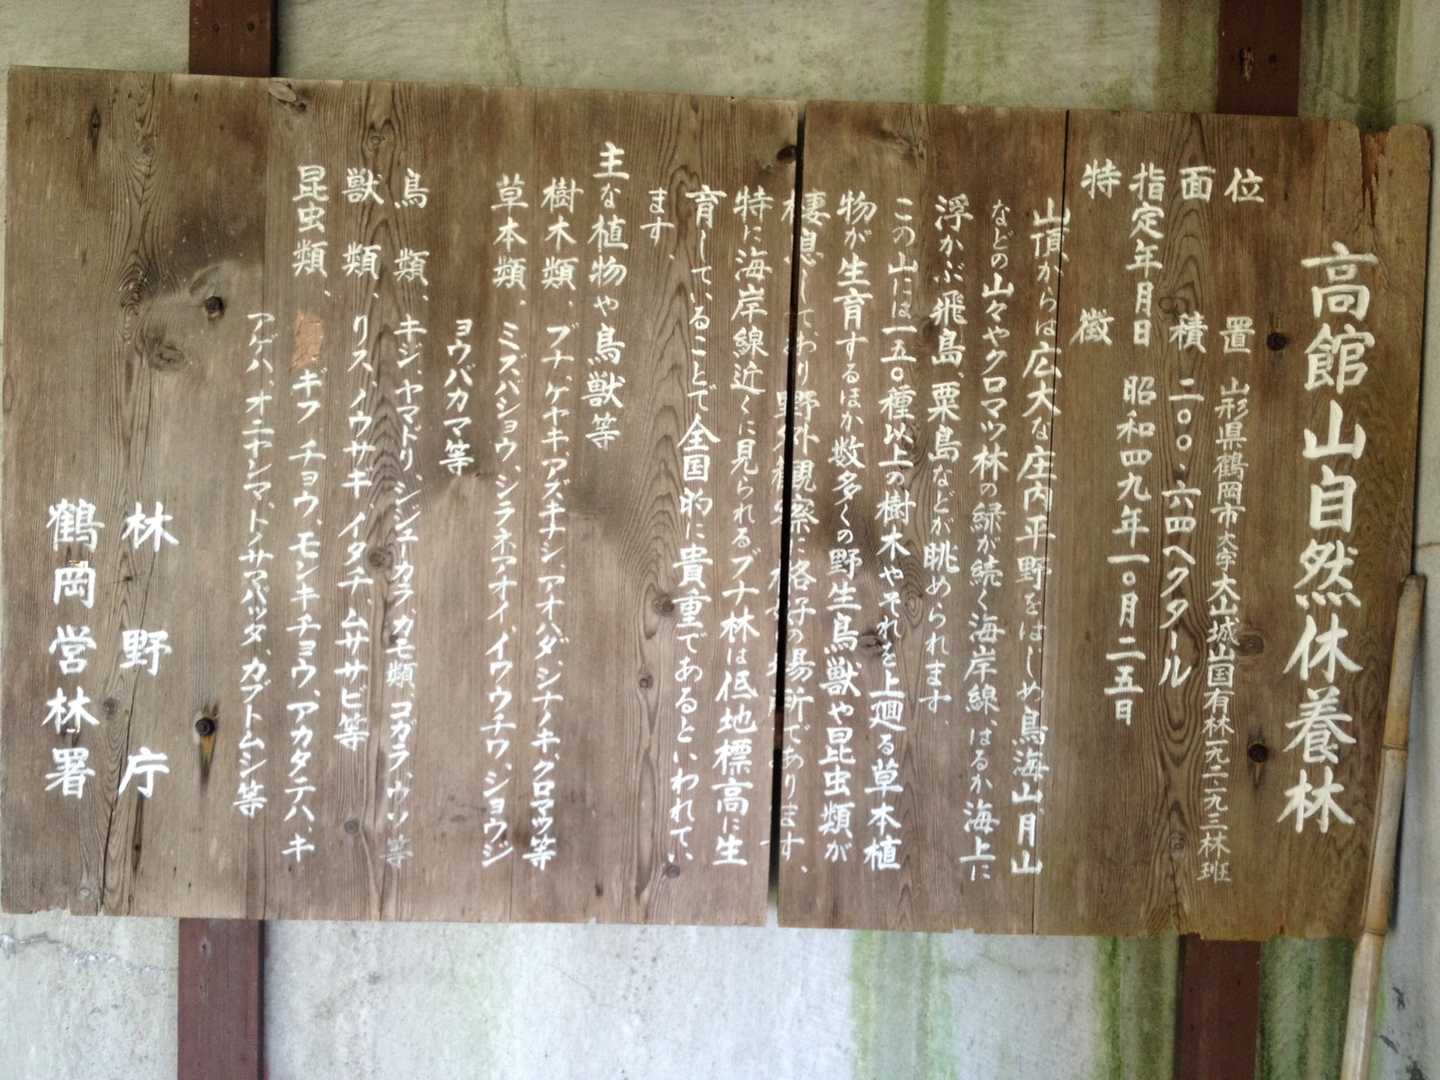 高館山自然休養林
位置 山形県鶴岡市大字大山城山国有林
面積 二〇〇・六四ヘクタール
指定年月日 昭和四九年一〇月二五日
特徴
山頂からは広大な庄内平野をはじめ鳥海山、月山
などの山々やクロマツ林の緑が続く海岸線、はるか海上に
浮かぶ飛島、粟島などが眺められます。
この山には一五〇種以上の樹木やそれを上廻る草本植
物が生育するほか数多くの野生鳥獣や昆虫類が
棲息しており野外観察に格好の場所であります、
特に海岸線近くに見られるブナ林は低地標高に生
育していることで全国的に貴重であるといわれてい
ます、
主な植物や鳥獣等
樹木類、ブナ、ケヤキ、アズキナシ、アオハダ、シナノキ、クロマツ等
草本類、ミズバショウ、シラネアオイ、イワウチワ、ショウジ
ョウバカマ等
鳥類、キジ、ヤマドリ、シジューカラ、カモ類、コガラ、ウソ等
獣類、リス、ノウサギ、イタチ、ムササビ等
昆虫類、ギフチョウ、モンキチョウ、アカタテハ、キ
アゲハ、オニヤンマ、トノサマバッタ、カブトムシ等
林野庁
鶴岡営林署